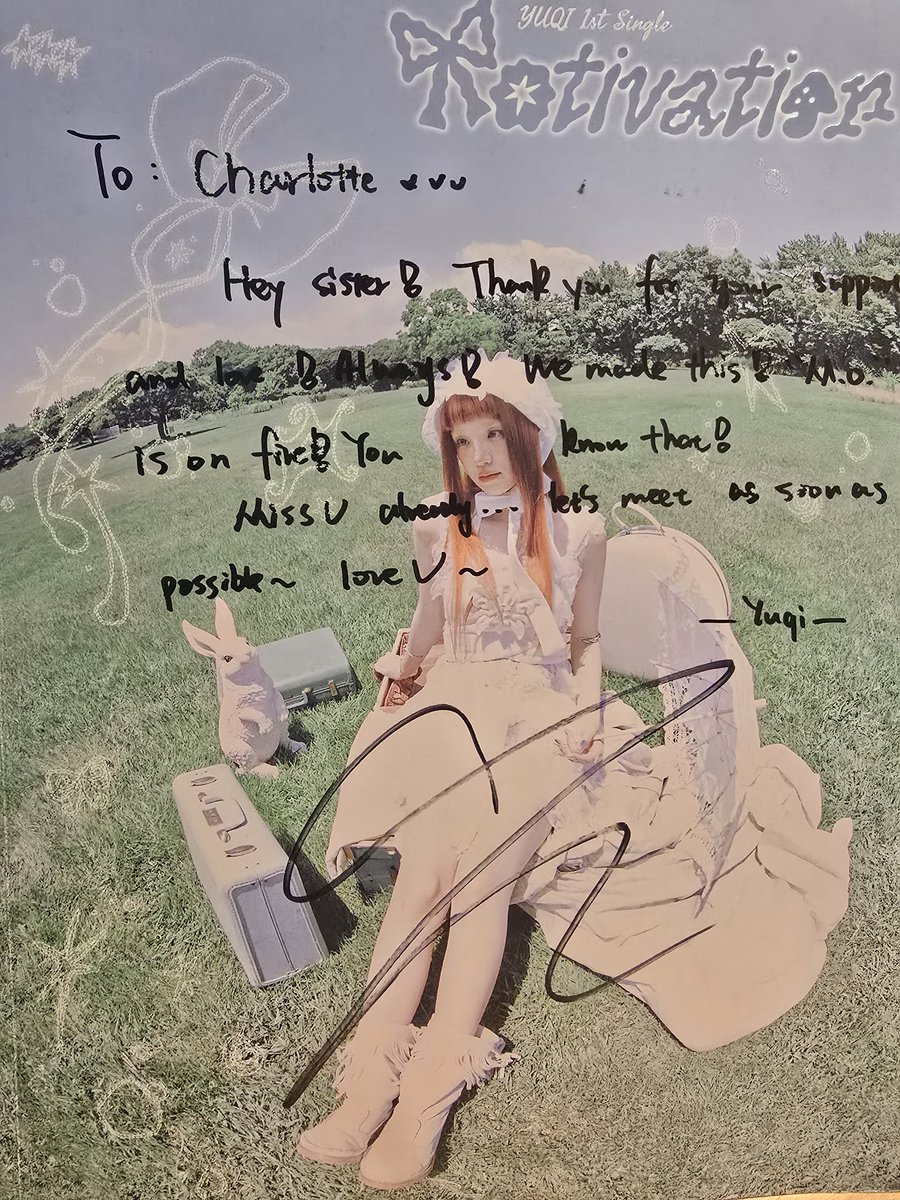 YUQI 1st Single
Motivation
To: Charlotte
Hey sister! Thank you for your support
and love! Always! We made this! "M.O."
is on fire! You know that!
Miss U already... let's meet as soon as
possible~ love U~
— Yuqi —